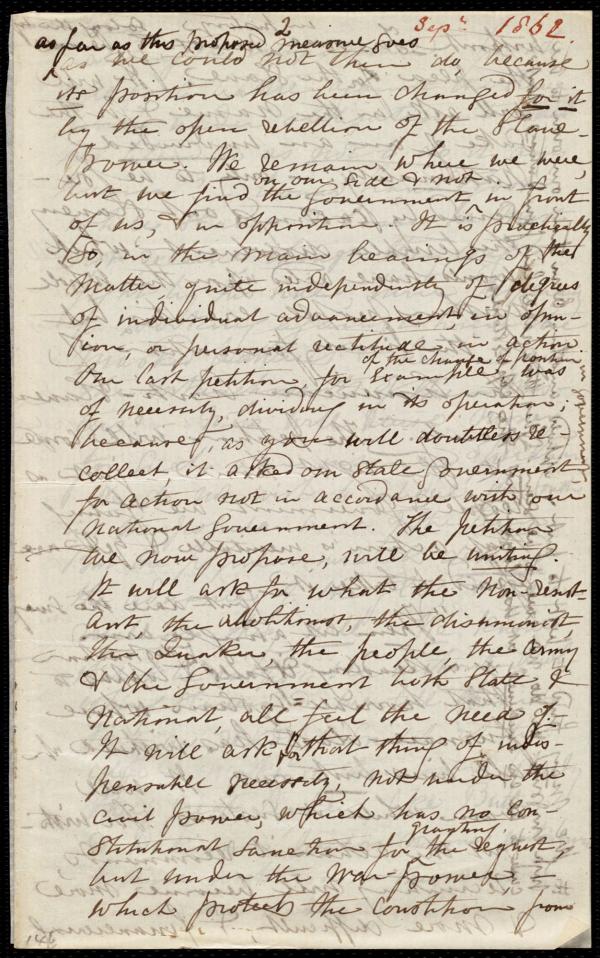 2 Sepr 1862
as far as this proposed measure goes
as we could not then do, because
its position has been changed for it
by the open rebellion of the Slave-
Power. We remain where we were,
on our side & not
but we find the Government in front
of us, & in opposition. It is practically
so, in the main bearings of the
matter, quite independently of degrees
of individual advancement, in opin-
ion, or personal rectitude in action.
of the change of position
Our last petition, for example, was
of necessity, dividing in its operation;
because, as you will doubtless re-
collect, it asked our State Government
for action not in accordance with our
National Government. The petition
we now propose, will be uniting.
It will ask for what the Non-resist-
ant, the abolitionist, the disunionist,
the Quaker, the people, the Army
& the Government both State &
National, all feel the need of.
It will ask for that thing of indis-
pensable necessity, not under the
civil power, which has no Con-
stitutional sanction for granting the request,
but under the War-power -
which protects the Constitution from